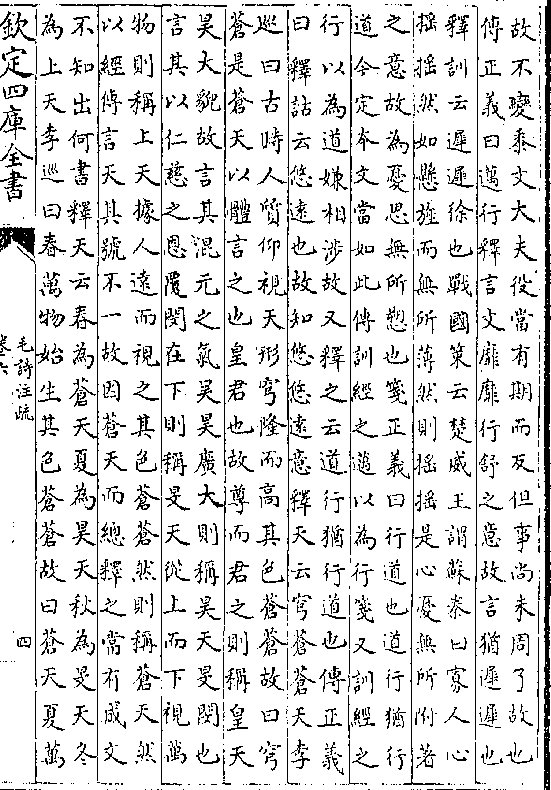 故不變黍文大夫役當有期而反但事尚未周了故也
傳正義曰邁行釋言文靡靡行舒之意故言猶遲遲也
釋訓云遲遲徐也戰國策云楚威王謂蘇秦曰寡人心
揺揺然如懸旌而無所薄然則揺揺是心憂無所附著
之意故為憂思無所愬也箋正義曰行道也道行猶行
道今定本文當如此傳訓經之邁以為行箋又訓經之
行以為道嫌相渉故又釋之云道行猶行道也傳正義
曰釋詁云悠遠也故知悠悠遠意釋天云穹蒼蒼天李
巡曰古時人質仰視天形穹隆而高其色蒼蒼故曰穹
蒼是蒼天以體言之也皇君也故尊而君之則稱皇天
昊大貌故言其混元之氣昊昊廣大則稱昊天旻閔也
言其以仁慈之恩覆閔在下則稱旻天從上而下視萬
物則稱上天據人遠而視之其色蒼蒼然則稱蒼天然
以經傳言天其號不一故因蒼天而總釋之當有成文
不知出何書釋天云春為蒼天夏為昊天秋為旻天冬
為上天李巡曰春萬物始生其色蒼蒼故曰蒼天夏萬
欽定四庫全書
毛詩注疏
卷六
四